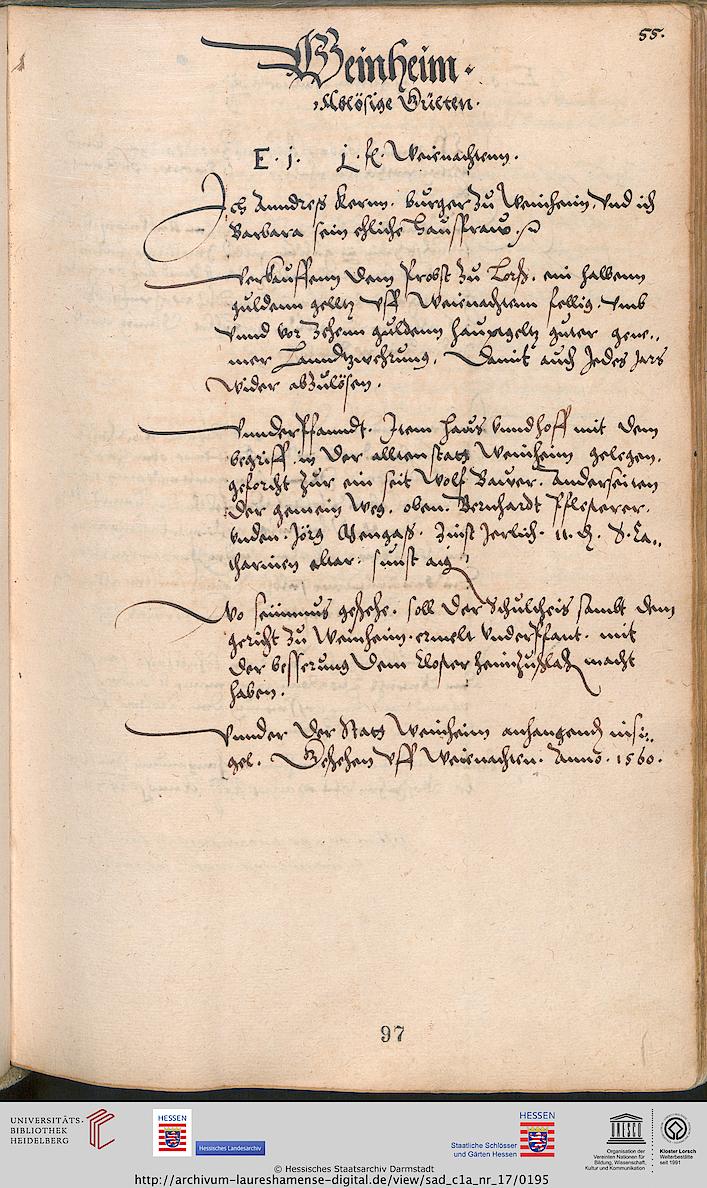 55.
Weinheim.
Ablösige Gülten.
E. j. fl. Weienachtenn.
Ich Anndress Kernn. burger zu Weinheim, vnd ich
Barbara sein ehliche Haussfraw.
Verkauffenn dem Probst zu Lorss. ein halbenn
guldenn geltz vff Weienachtenn fellig. vmb
vnnd vor zehenn guldenn hauptgeltz guter gene„
mer Lanndtzwehrung. Damit auch Jedes Jars
wider abzulösen.
Vnderpfanndt. Item haus vnnd hoff mit dem
begriff in der alltenstatt Weinheim gelegen.
geforcht zur ein seit Wolf Bauer. Anderseiten
der gemein weg. oben. Bernhardt Pflesterer.
vnden. Jörg Wengass. Zinst Jerlich. S. Ca„
tharinen altar. sunst
Wo seumnus geschehe. soll der Schulcheis sambt dem
gericht zu Weinheim. ermelt vnderpfant. mit
der besserung dem Closter heimzuschlagen macht
haben.
Vnnder der Statt Weinheim anhangendt insi„
gel. Geschehen vff Weienachten. Anno. 1560.
97
UNIVERSITÄTS-
BIBLIOTHEK
HEIDELBERG
HESSEN
Hessisches Landesarchiv
HESSEN
Staatliche Schlösser
und Gärten Hessen
Organisation der
Vereinten Nationen für
Bildung, Wissenschaft,
Kultur und Kommunikation
Kloster Lorsch
Welterbestätte
seit 1991
© Hessisches Staatsarchiv Darmstadt
http://archivum-laureshamense-digital.de/view/sad_c1a_nr_17/0195